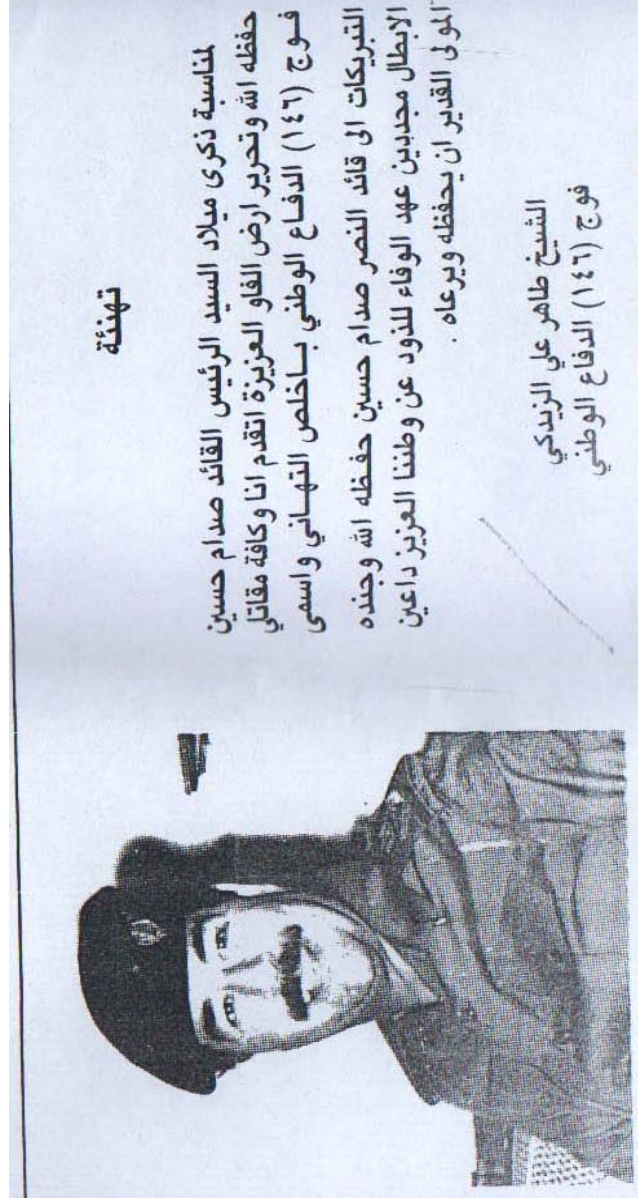 تهنئة
لمناسبة ذكرى ميلاد السيد الرئيس القائد صدام حسين
حفظه الله وتحرير ارض الفاو العزيزة اتقدم انا وكافة مقاتلي
فوج (١٤٦) الدفاع الوطني باخلص التهاني واسمى
التبريكات الى قائد النصر صدام حسين حفظه الله وجنده
الابطال مجددين عهد الوفاء للذود عن وطننا العزيز داعين
المولى القدير ان يحفظه ويرعاه .
الشيخ طاهر علي الزيدكي
فوج (١٤٦) الدفاع الوطني